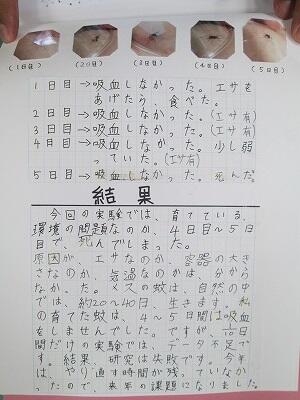 (1日目) (2日目) (3日目) (4日目) (5日目)
1日目→吸血しなかった。エサを
あげたら、食べた。
2日目→吸血しなかった。(エサ有)
3日目→吸血しなかった。(エサ有)
4日目→吸血しなかった。少し弱
っていた。(エサ有)
5日目→吸血しなかった。死んだ。
結果
今回の実験では、育てている、
環境の問題なのか、4日目~5日
目で、死んでしまった。
原因が、エサなのか、容器の大き
さなのか、気温なのかは、分から
なかった。メスの蚊は、自然の中
では、約20~40日、生きます。私
の育てた蚊は、4~5日間は吸血
をしませんでした。ですが、1/10日
間だけの実験では、データ不足で
す。結果、研究は失敗です。今年
は、やり直す時間が残っていなか
ったので、来年の課題になりました。